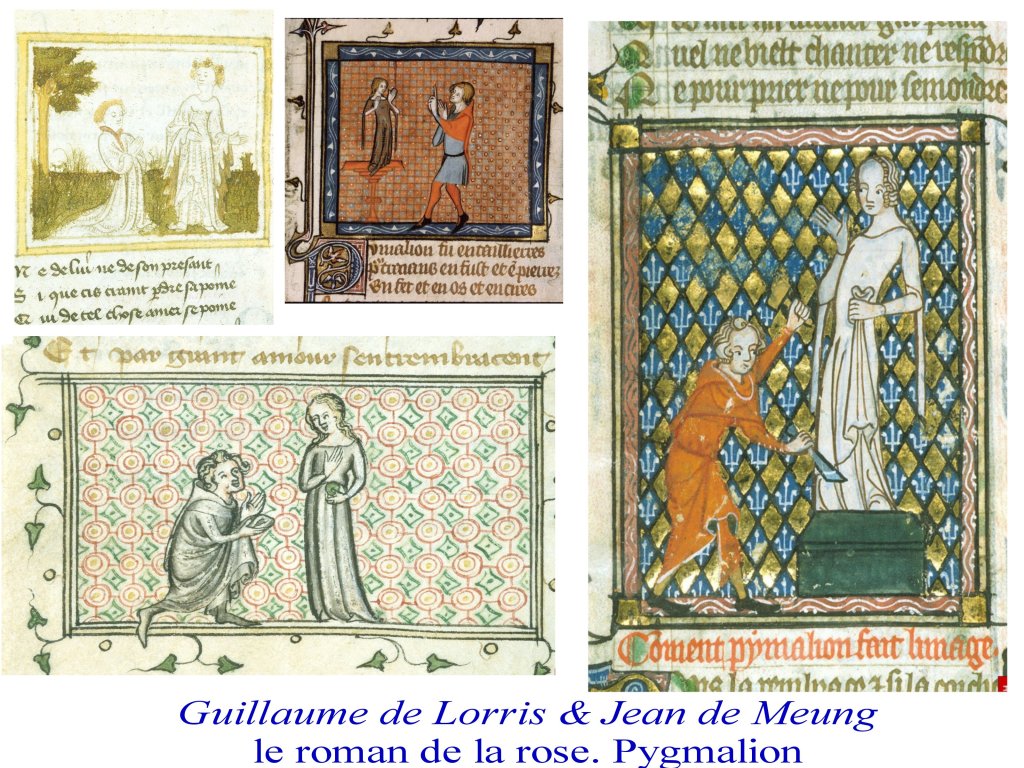 N e de lui ne de son presant
S i que cis craint perdre sa pome
C ui de tel chose amer se pome
Pymalion fu entaillierres
Pourtraians en fust et en pierrez
En fer et en os et en cires
Et par grant amour sentrembracent
quel ne vielt chanter ne respondre
e pour prier ne pour semondre
Coment pymalion fait lymage
Guillaume de Lorris & Jean de Meung
le roman de la rose. Pygmalion